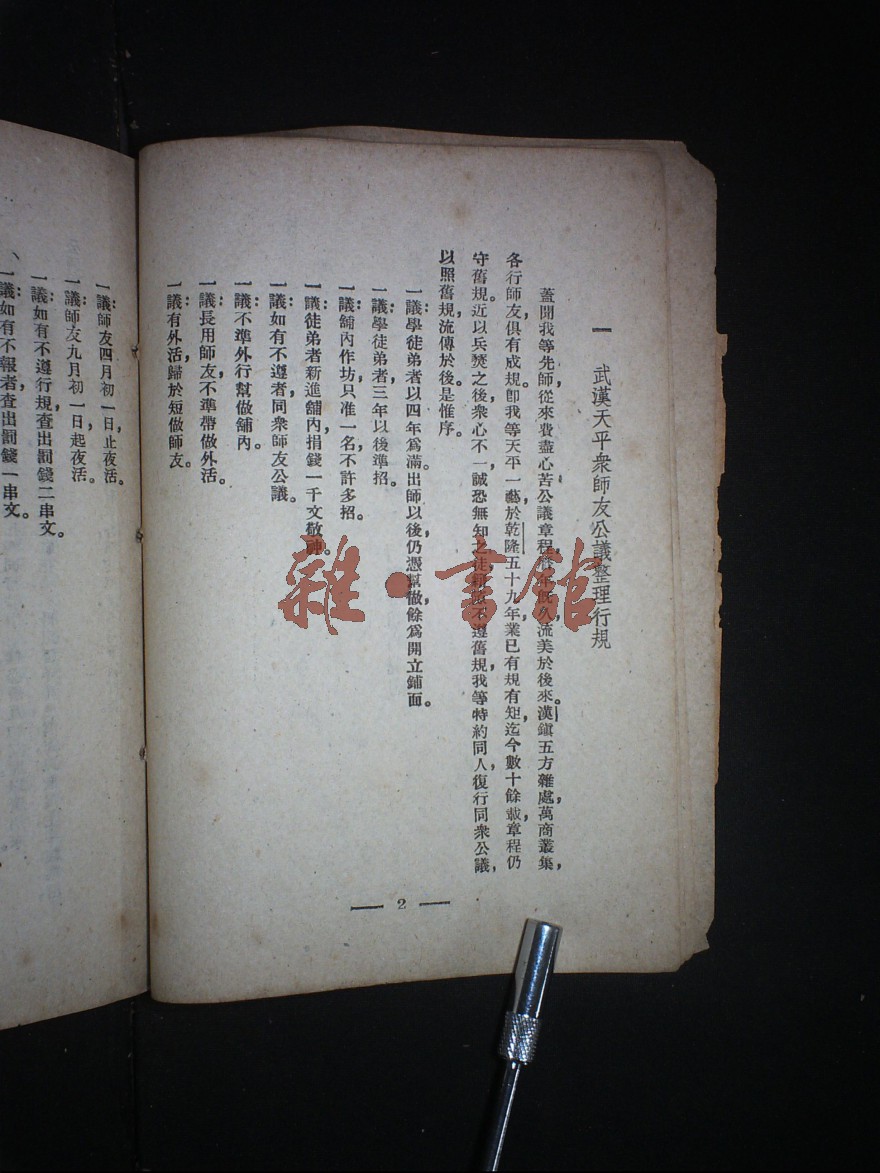 一 武漢天平衆師友公議整理行規
蓋聞我等先師從來費盡心苦公議章程，年既久流美於後來。漢鎮五方雜處，萬商叢集，
各行師友，俱有成規。卽我等天平一藝，於乾隆五十九年，業已有規有矩，迄今數十餘載，章程仍
守舊規。近以兵燹之後，衆心不一，誠恐無知之徒，不遵舊規，我等特約同人，復行同衆公議，
以照舊規，流傳於後。是惟序。
一議：學徒弟者以四年爲滿。出師以後，仍憑幫做餘爲開立鋪面。
一議學徒弟者三年以後準招。
一議：舖內作坊只准一名，不許多招。
一議：徒弟者新進舖內，捐錢一千文敬神。
一議：如有不遵者，同衆師友公議。
一議：不準外行幫做舖內。
一議：長用師友，不準帶做外活。
一議：有外活歸於短做師友。
一議：師友四月初一日止夜活。
一議：師友九月初一日起夜活。
一議：如有不遵行規，查出罰錢二串文。
一議：如有不報者，查出罰錢一串文。
2
雜·書館